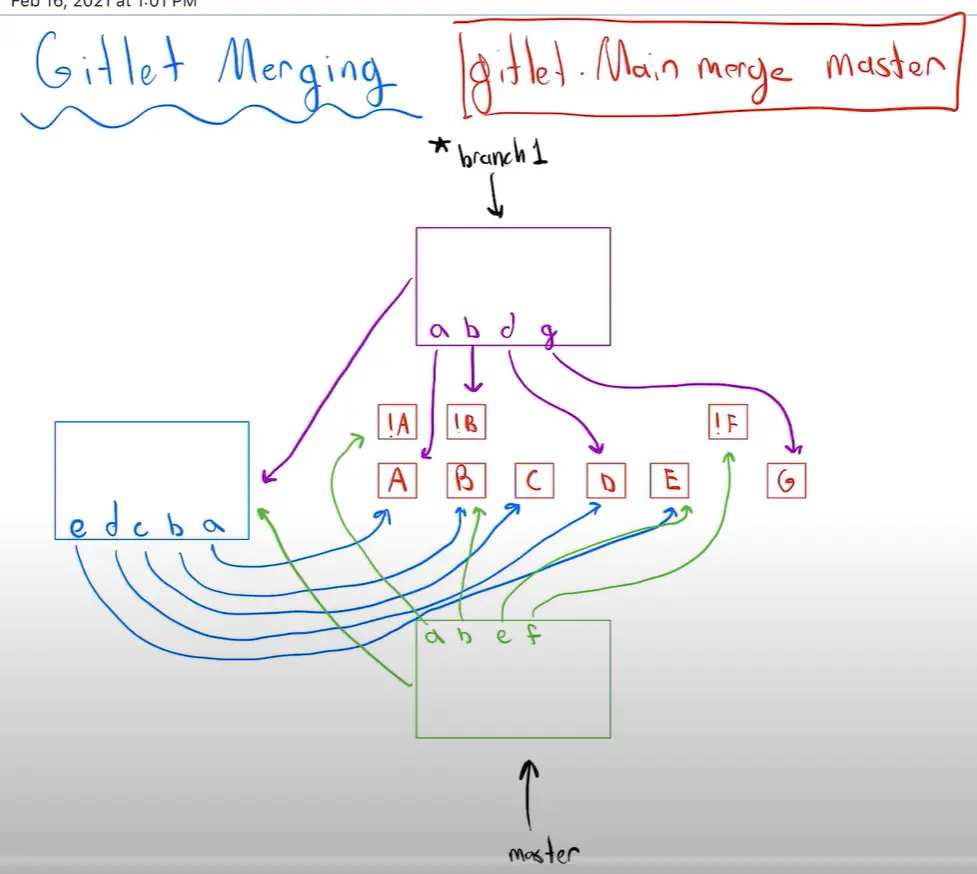 Feb 16, 2021 at 1:01 PM
Gitlet Merging
gitlet.Main merge master
* branch1
a b d g
!A !B !F
A B C D E G
e d c b a
a b e f
master